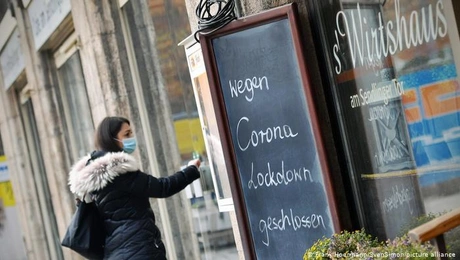 wegen
Corona
Lockdown
geschlossen
s'Wirtshaus
am Sendlinger Tor
picture alliance